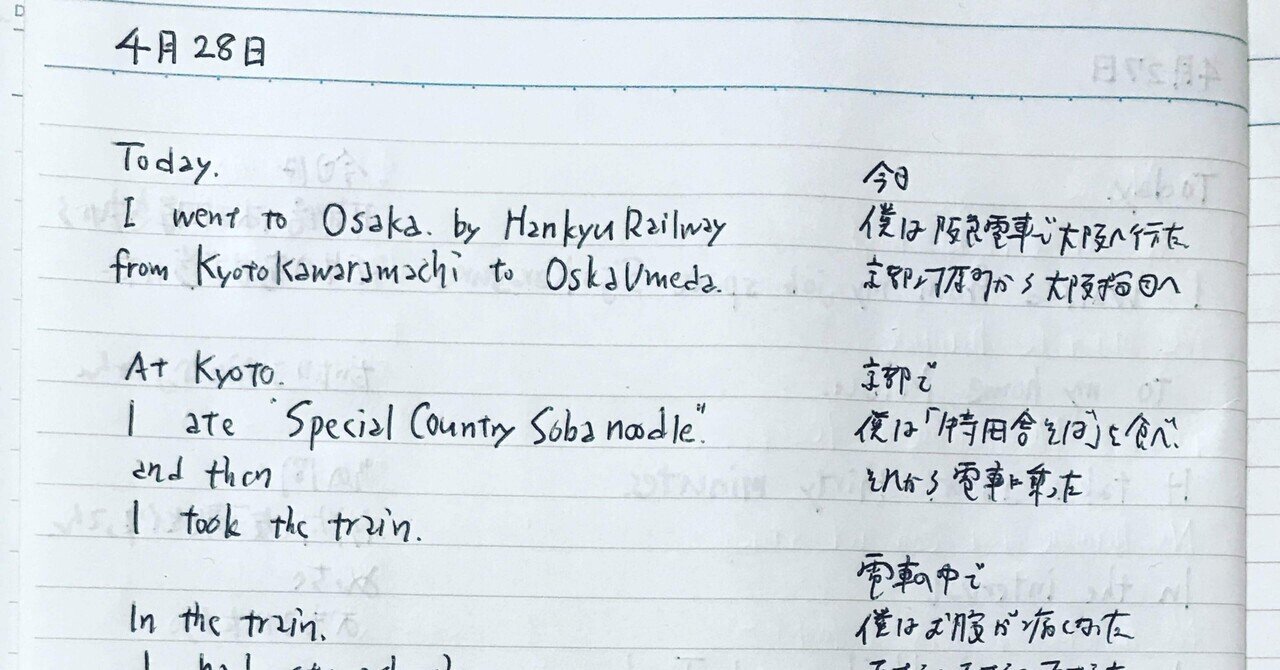 4月28日
Today.
I went to Osaka. by Hankyu Railway
from Kyoto Kawaramachi to Oska Umeda.
At Kyoto.
I ate "Special Country Soba noodle"
and then
I took the train.
In the train.
今日
僕は阪急電車で大阪へ行った
京都河原町から大阪梅田へ
京都で
僕は「特田舎そば」を食べ
それから電車に乗った
電車の中で
僕はお腹が痛くなった